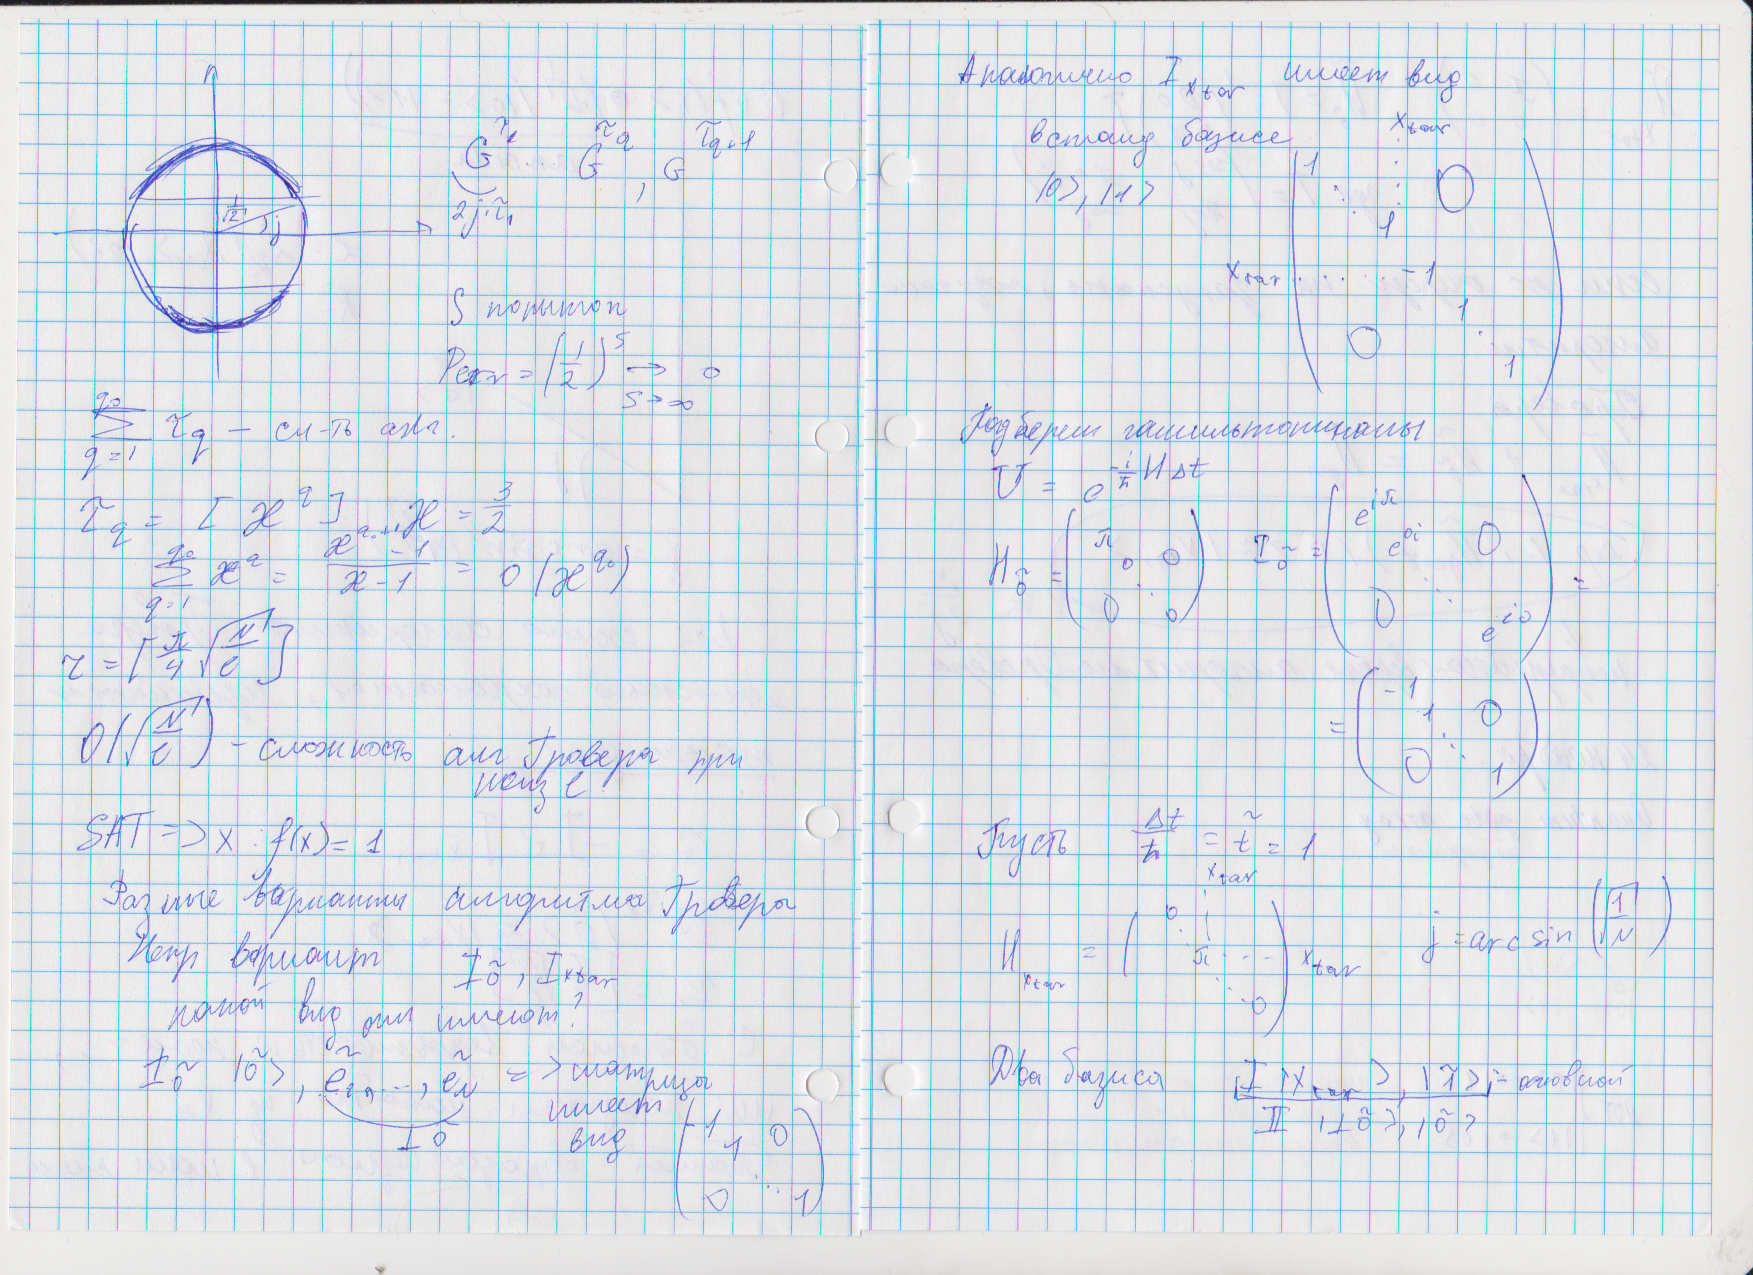 G^{τ_1} ..... G^{τ_q}, G^{τ_{q+1}}
2j·τ_1
1/√2 j
S попыток
= (1/2)^S → 0
S→∞
∑_{q=1}^{q_0} τ_q – сл-ть алг.
τ_q = [ϰ^q] ϰ = 3/2
∑_{q=1}^{q_0} ϰ^q = (ϰ^{q_0+1} - 1)/(ϰ - 1) = O(ϰ^{q_0})
τ = [π/4 √(N/l)]
O(√(N/l)) – сложность алг Гровера при
неизв l
SAT => x : f(x) = 1
Разные варианты алгоритма Гровера
Непр вариант I_õ, I_{x_tar}
какой вид они имеют?
I_õ |õ>, ẽ_1, ..., ẽ_N => матрицы
имеет
вид
⊥õ
(-1 1 0
0 ⋱ 1)
Аналогично I_{x_tar} имеет вид
в станд базисе
|0>, |1>
x_tar
1 ⋱ 0
1
x_tar ....... -1
1
0 ⋱ 1
Подберем гамильтонианы
U = e^{-i/ħ H Δt}
H_õ = (π 0 0 ⋱ 0 0) I_õ = (e^{iπ} e^{0i} 0 0 ⋱ e^{i0}) =
= (-1 1 0 0 ⋱ 1)
Пусть Δt/ħ = t̃ = 1
x_tar
H_{x_tar} = (0 ⋱ π ⋱ 0) x_tar j = arcsin(√(1/N))
Два базиса I |x_tar>, |1̃> – основной
II |⊥õ>, |õ>